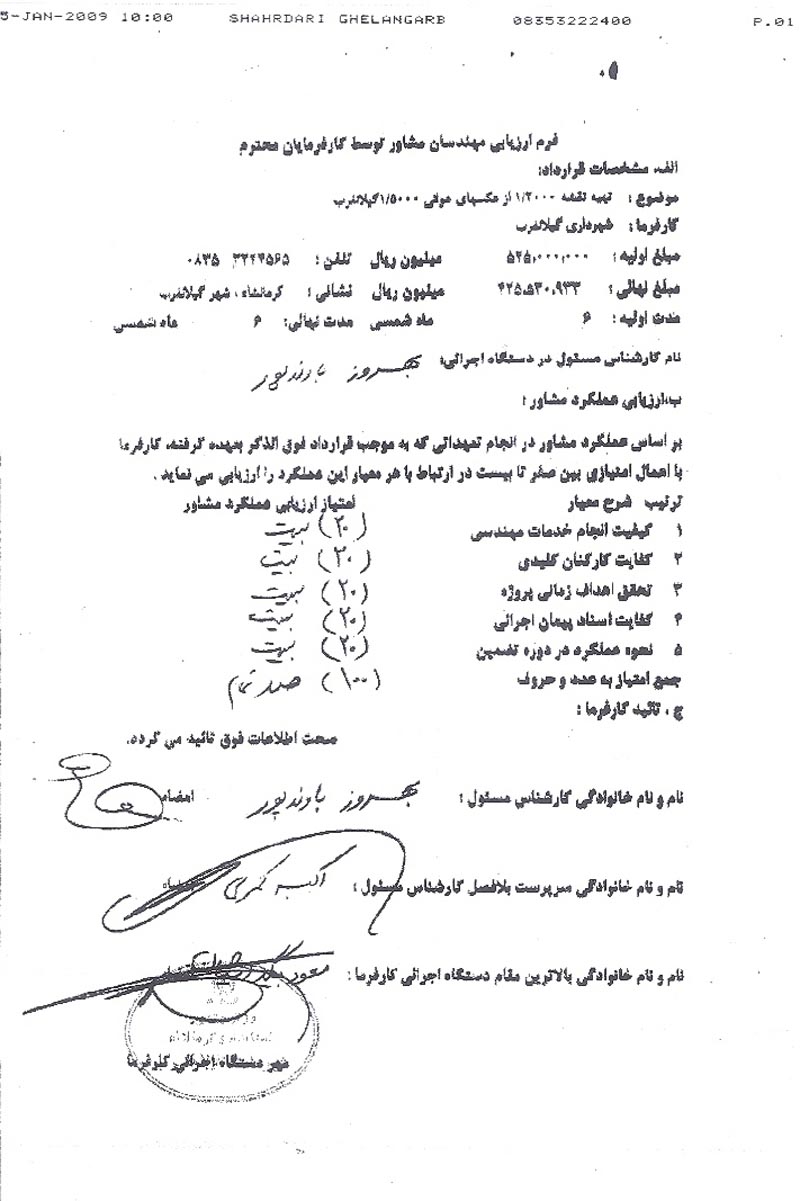 5-JAN-2009 10:00 SHAHRDARI GHELANGARB 08353222400 P.01
فرم ارزیابی مهندسان مشاور توسط کارفرمایان محترم
الف. مشخصات قرارداد:
موضوع : تهیه نقشه ۱/۲۰۰۰ از عکسهای هوائی ۱/۵۰۰۰ گیلانغرب
کارفرما : شهرداری گیلانغرب
مبلغ اولیه : ۵۲۵,۰۰۰,۰۰۰ میلیون ریال تلفن : ۳۲۲۴۵۶۵ ۰۸۳۵
مبلغ نهائی : ۴۲۵,۵۳۰,۹۳۳ میلیون ریال نشانی : کرمانشاه ، شهر گیلانغرب
مدت اولیه : ۶ ماه شمسی مدت نهائی: ۶ ماه شمسی
نام کارشناس مسئول در دستگاه اجرائی: بهروز باوندپور
ب.ارزیابی عملکرد مشاور :
بر اساس عملکرد مشاور در انجام تعهداتی که به موجب قرارداد فوق الذکر بعهده گرفته، کارفرما
با اعمال امتیازی بین صفر تا بیست در ارتباط با هر معیار این عملکرد را ارزیابی می نماید .
ترتیب شرح معیار امتیاز ارزیابی عملکرد مشاور
۱ کیفیت انجام خدمات مهندسی (۲۰) بیست
۲ کفایت کارکنان کلیدی (۲۰) بیست
۳ تحقق اهداف زمانی پروژه (۲۰) بیست
۴ کفایت اسناد پیمان اجرائی (۲۰) بیست
۵ نحوه عملکرد در دوره تضمین (۲۰) بیست
جمع امتیاز به عدد و حروف (۱۰۰) صد تمام
ج . تائید کارفرما :
صحت اطلاعات فوق تائید می گردد.
نام و نام خانوادگی کارشناس مسئول : بهروز باوندپور امضاء
نام و نام خانوادگی سرپرست بلافصل کارشناس مسئول :
نام و نام خانوادگی بالاترین مقام دستگاه اجرائی کارفرما : مسعود
مهر دستگاه اجرائی کارفرما